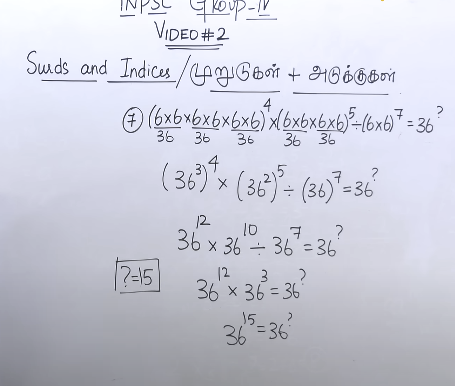 TNPSC GROUP-IV
VIDEO #2
Surds and Indices / முறுடுகள் + அடுக்குகள்
⑦ (6×6×6×6×6×6)⁴×(6×6×6×6)⁵÷(6×6)⁷=36^?
36 36 36 36 36
(36³)⁴ × (36²)⁵ ÷ (36)⁷=36^?
36¹² × 36¹⁰ ÷ 36⁷ = 36^?
?=15 36¹² × 36³ = 36^?
36¹⁵ = 36^?